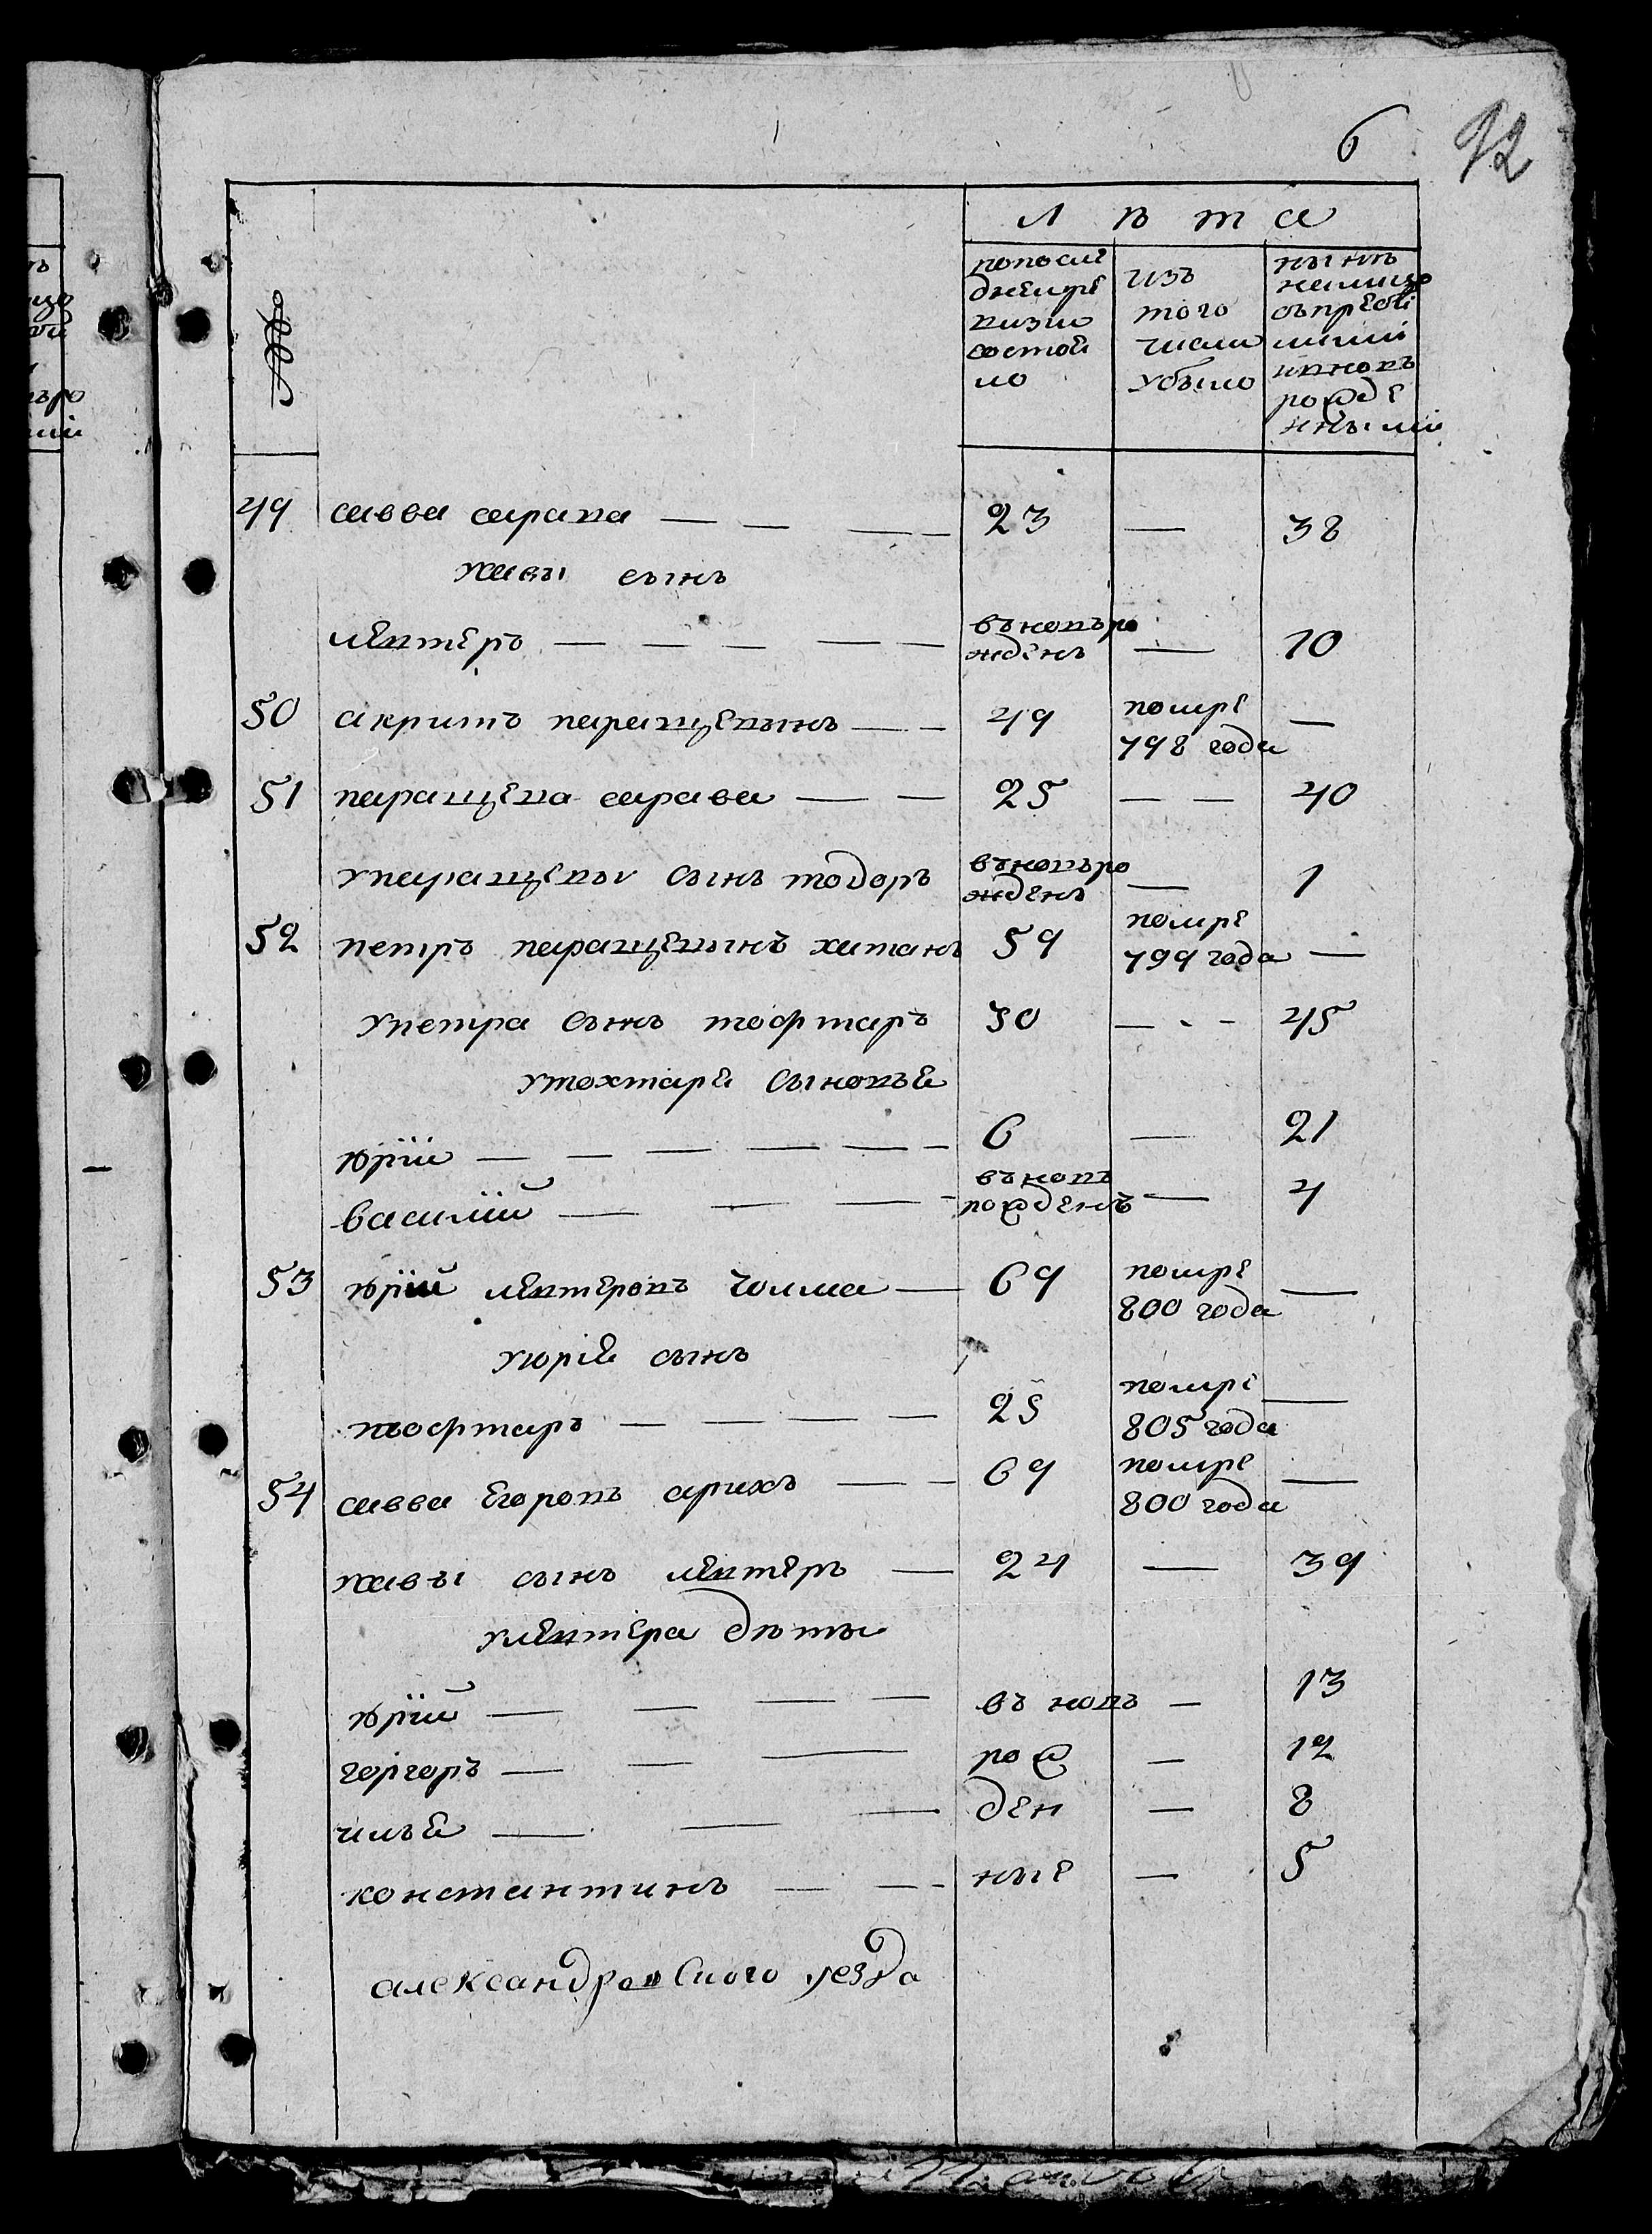 6 92
№
Лѣта
попосле
днейре
визии
состоя
ло
изъ
того
числа
убыло
нынѣ
налицо
съприбы
лыми
ивновь
рожде
нными
49 савва сарава — — — — 23 — 38
усавы сынъ
левтеръ — — — — — вьновъро
жденъ — 10
50 акритъ паращевынъ — — 49 помре
798 года —
51 паращева сарава — — 25 — — 40
упаращевы сынъ тодоръ вьновъро
жденъ — 1
52 петръ паращевынъ хитанъ 59 помре
799 года —
упетра сынъ тофтаръ 30 — - - 45
утохтара сыновья
юрiй — — — — — — 6 — 21
василiй — — — - вьновъ
рожденъ — 4
53 юрiй левтеровъ чолма — 69 помре
800 года —
уюрiя сынъ
тофтаръ — — — — 25 помре
805 года —
54 савва егоровъ арихъ — — 69 помре
800 года —
усавы сынъ левтеръ — 24 — 39
улевтера дѣты
юрiй — — — — въ новъ — 13
горгоръ — — — рож — 12
илья — — — ден — 8
константинъ — — - ные — 5
александровского уезда